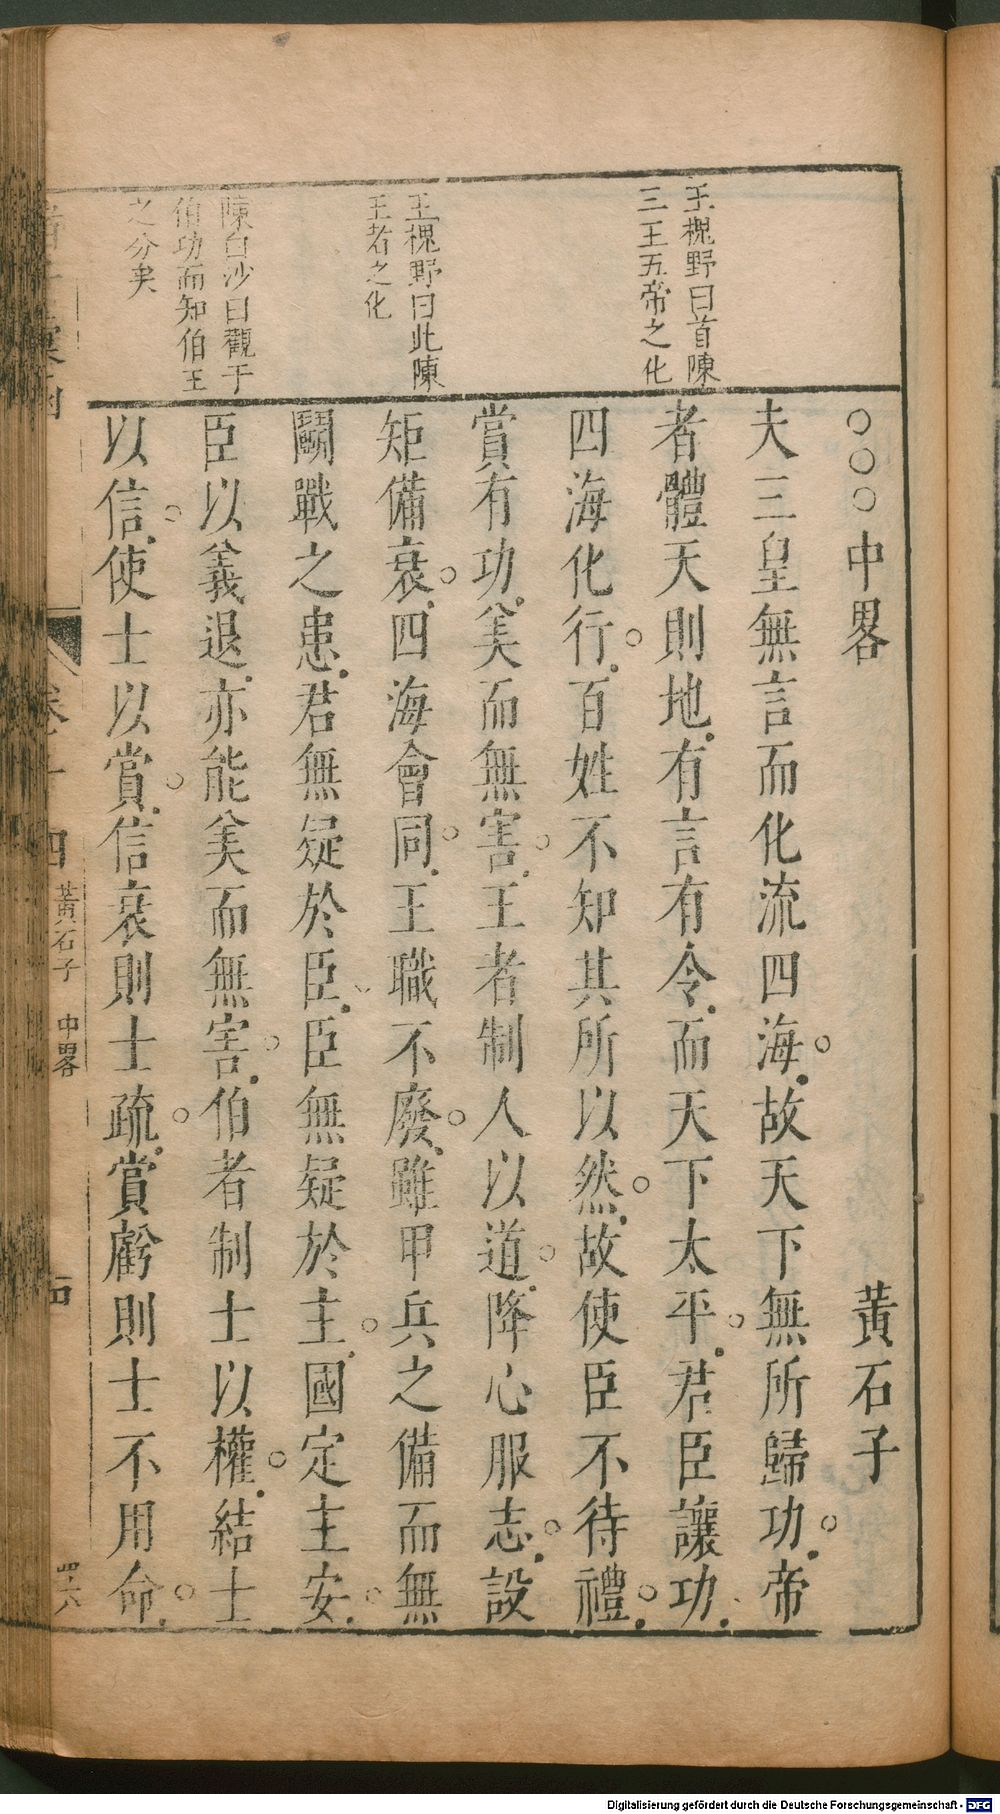 王槐野曰首陳
三王五帝之化
王槐野曰此陳
王者之化
陳白沙曰觀于
伯功而知伯王
之分矣
○○○中畧 黃石子
夫三皇無言而化流四海故天下無所歸功帝
者體天則地有言有令而天下太平君臣讓功
四海化行百姓不知其所以然故使臣不待禮
賞有功羙而無害王者制人以道降心服志設
矩備衰四海會同王職不廢雖甲兵之備而無
鬭戰之患君無疑於臣臣無疑於主國定主安
臣以義退亦能羙而無害伯者制士以權結士
以信使士以賞信衰則士疏賞虧則士不用命
黃石子 中畧
四六
Digitalisierung gefördert durch die Deutsche Forschungsgemeinschaft - DFG